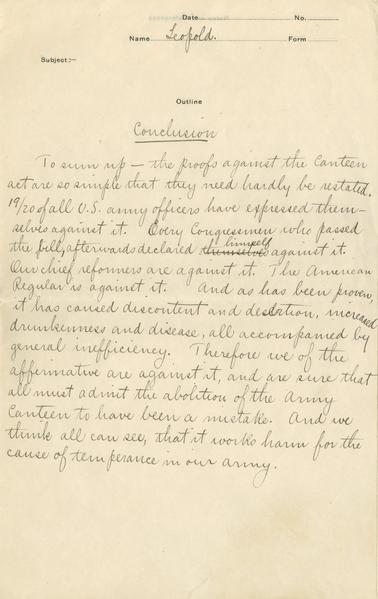 Date No.
Name Leopold. Form
Subject:-
Outline
Conclusion
To sum up - the proofs against the Canteen
act are so simple that they need hardly be restated.
19/20 of all U.S. army officers have expressed them-
selves against it. Every Congressmen who passed
the bill, afterwards declared themselves himself against it.
Our chief reformers are against it. The American
Regular is against it. And as has been proven,
it has caused discontent and desertion, increased
drunkenness and disease, all accompanied by
general inefficiency. Therefore we of the
affirmative are against it, and are sure that
all must admit the abolition of the Army
Canteen to have been a mistake. And we
think all can see, that it works harm for the
cause of temperance in our army.